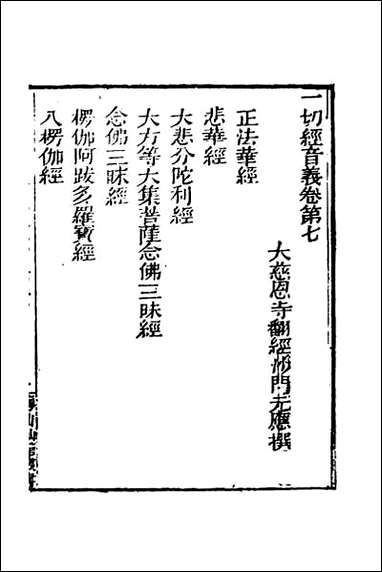 一切經音義卷第七
大慈恩寺翻經沙門玄應撰
正法華經
悲華經
大悲分陀利經
大方等大集菩薩念佛三昧經
念佛三昧經
楞伽阿跋多羅寶經
入楞伽經